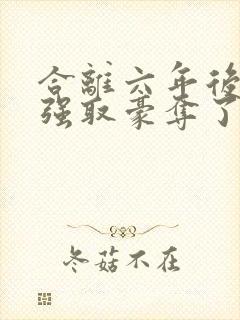 合離六年後
强取豪奪了
冬菇不在